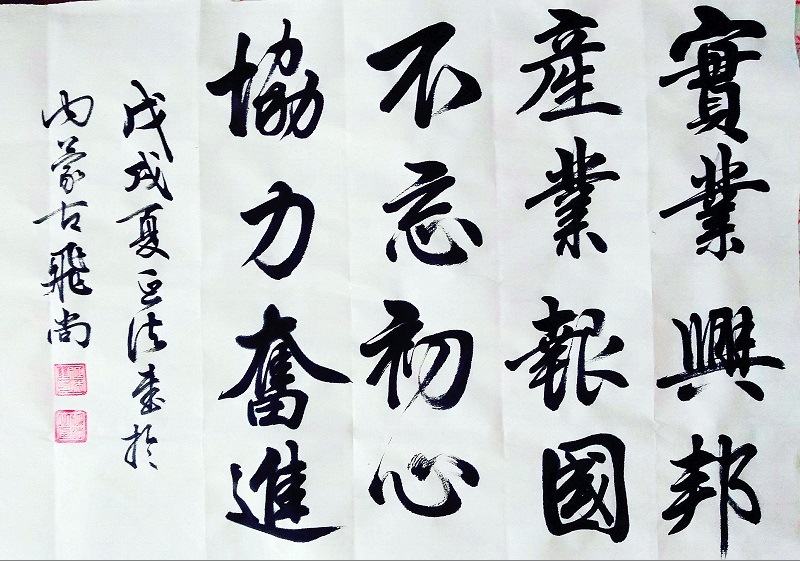 實業興邦
産業報國
不忘初心
協力奮進
戊戌夏正法書於
内蒙古飛尚